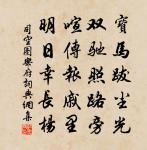 寶馬跋塵光
双馳照路旁
喧傳報戚里
明日幸長楊
司空圖樂府詞典網集